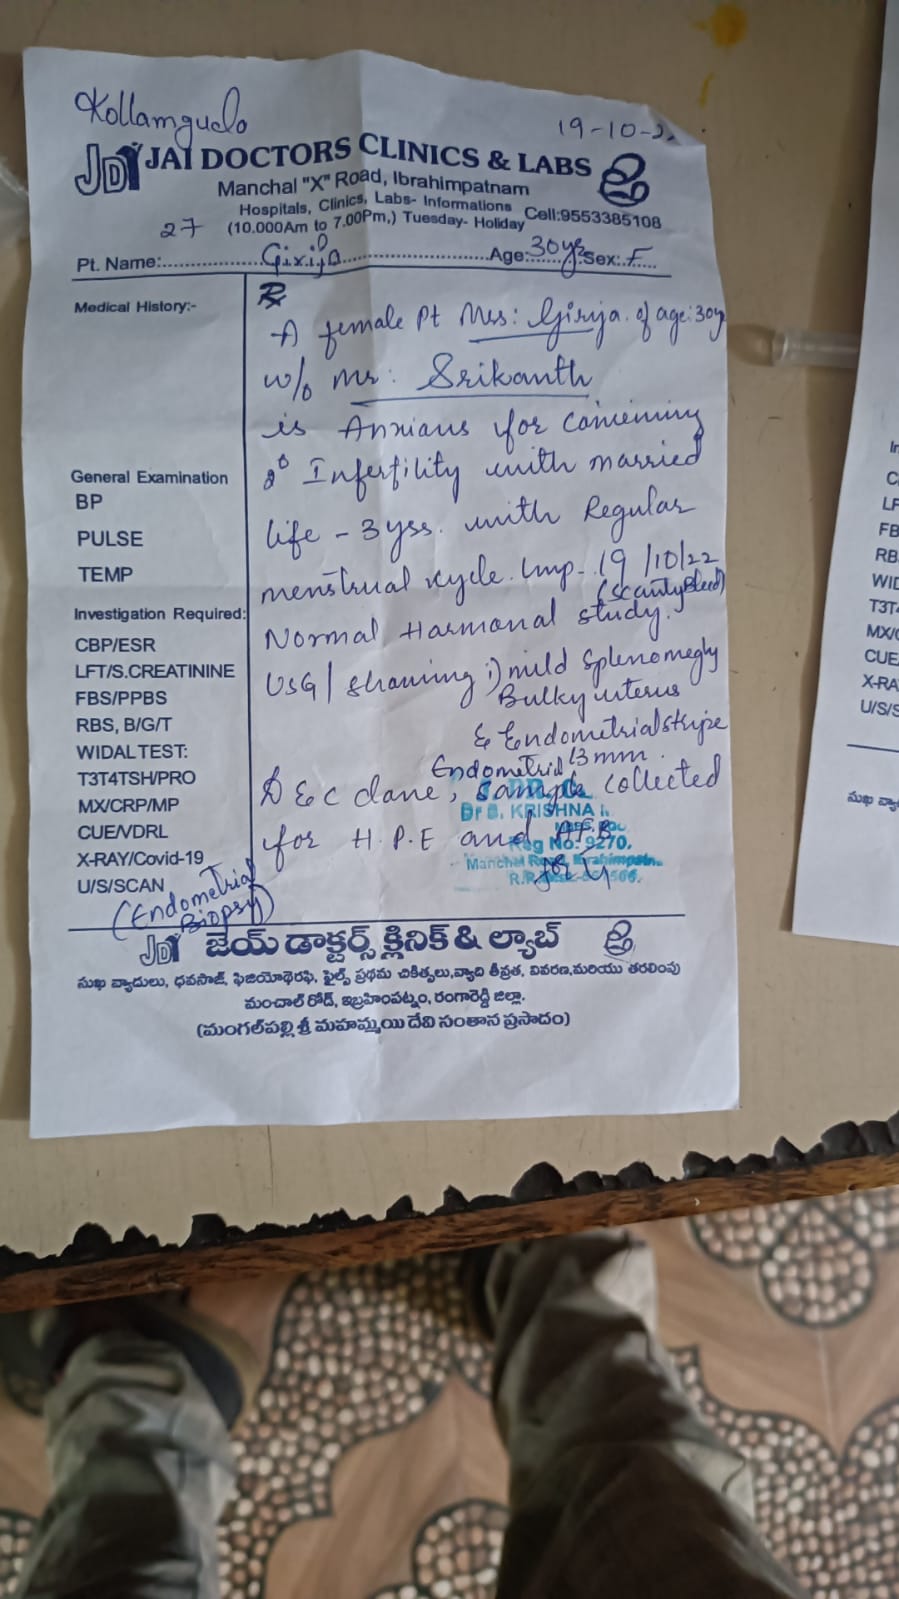 Kollamguda
19-10-22
JDI JAI DOCTORS CLINICS & LABS
Manchal "X" Road, Ibrahimpatnam
Hospitals, Clinics, Labs- Informations Cell:9553385108
27 (10.000Am to 7.00Pm,) Tuesday- Holiday
Pt. Name:............Girija............Age:30yrs Sex:.F....
Medical History:-
General Examination
BP
PULSE
TEMP
Investigation Required:
CBP/ESR
LFT/S.CREATININE
FBS/PPBS
RBS, B/G/T
WIDAL TEST:
T3T4TSH/PRO
MX/CRP/MP
CUE/VDRL
X-RAY/Covid-19
U/S/SCAN
(Endometrial
Biopsy)
Rx
A female Pt Mrs: Girija. of age: 30y
w/o Mr: Srikanth
is Anxious for conceiving
2° Infertility with married
life - 3 yrs. with Regular
menstrual cycle. Lmp- 19/10/22
(scanty Bleed)
Normal Harmonal study.
USG/ showing :) mild Splenomegly
Bulky uterus
& Endometrial stripe
13 mm.
Endometrial
D & C done, sample collected
for H.P.E and AFB
Dr B. KRISHNA
Reg No: 9270.
జేయ్ డాక్టర్స్ క్లినిక్ & ల్యాబ్
సుఖ వ్యాదులు, ధవసాజ్, ఫిజియోథెరఫి, ఫైల్స్ ప్రథమ చికిత్సలు,వ్యాది తీవ్రత, వివరణ,మరియు తరలింపు
మంచాల్ రోడ్, ఇబ్రహింపట్నం, రంగారెడ్డి జిల్లా.
(మంగల్‌పల్లి శ్రీ మహమ్మయి దేవి సంతాన ప్రసాదం)